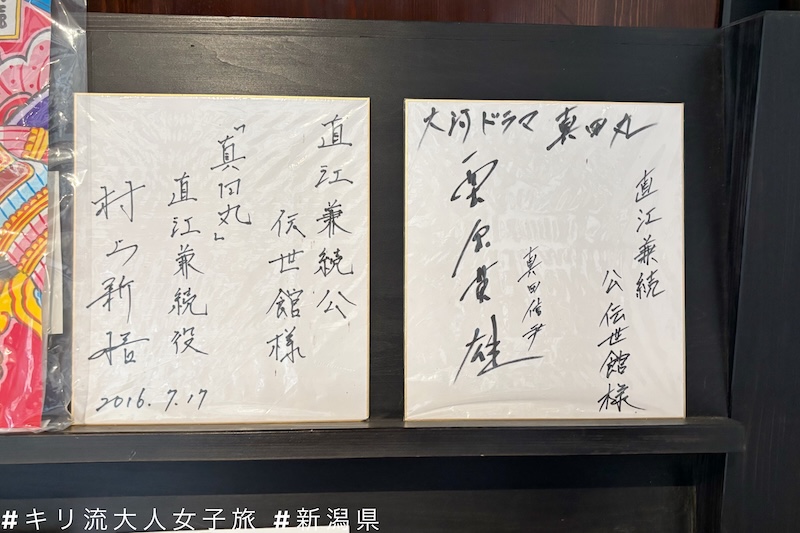 直江兼続公
伝世館様
「真田丸」
直江兼続役
村上新悟
2016.7.17
大河ドラマ 真田丸
直江兼続
公伝世館様
真田信尹
栗原英雄
#キリ流大人女子旅 #新潟県